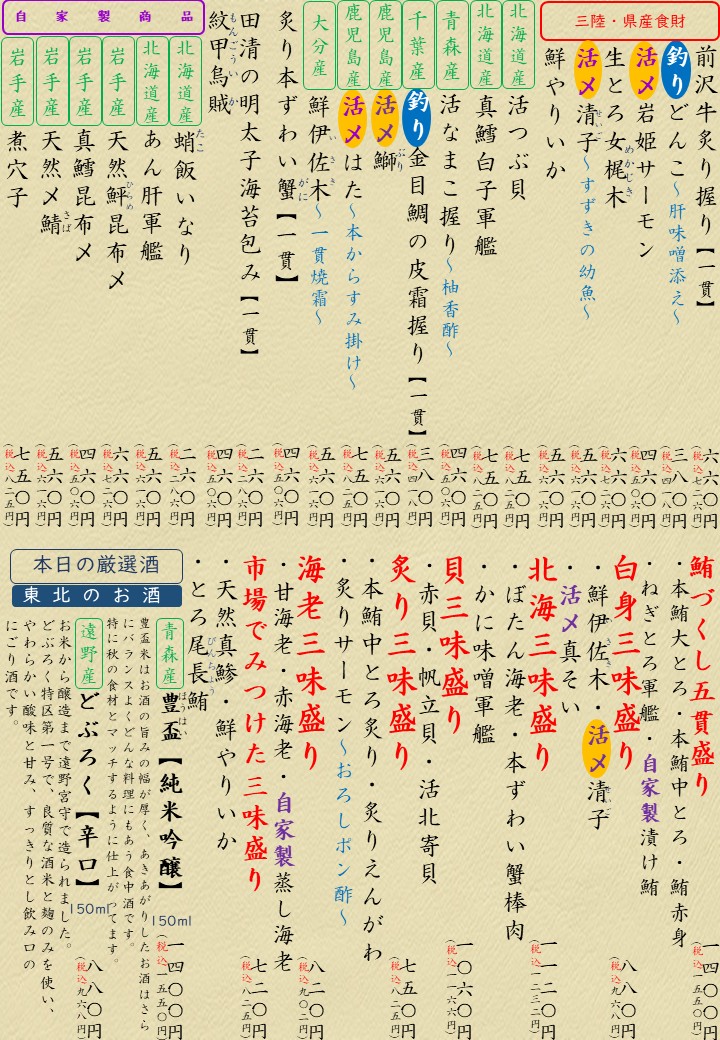 三陸・県産食財
前沢牛炙り握り【一貫】 六六〇円（税込七二六円）
釣り どんこ～肝味噌添え～ 三八〇円（税込四一八円）
活〆 岩姫サーモン 四六〇円（税込五〇六円）
生とろ女梶木 めかじき 六六〇円（税込七二六円）
活〆 清子 せいご ～すずきの幼魚～ 五六〇円（税込六一六円）
鮮やりいか 五六〇円（税込六一六円）
北海道産 活つぶ貝 七五〇円（税込八二五円）
北海道産 真鱈白子軍艦 七五〇円（税込八二五円）
青森産 活なまこ握り～柚香酢～ 四六〇円（税込五〇六円）
千葉産 釣り 金目鯛の皮霜握り【一貫】 三八〇円（税込四一八円）
鹿児島産 活〆 鰤 ぶり 五六〇円（税込六一六円）
鹿児島産 活〆 はた～本からすみ掛け～ 七五〇円（税込八二五円）
大分産 鮮伊佐木 いさき ～一貫焼霜～ 五六〇円（税込六一六円）
炙り本ずわい蟹 がに 【一貫】 四六〇円（税込五〇六円）
田清の明太子海苔包み【一貫】 二六〇円（税込二八六円）
紋甲烏賊 もんごういか 四六〇円（税込五〇六円）
自家製商品
北海道産 蛸飯いなり たこ 二六〇円（税込二八六円）
北海道産 あん肝軍艦 五六〇円（税込六一六円）
岩手産 天然鮃昆布〆 ひらめ 六六〇円（税込七二六円）
岩手産 真鱈昆布〆 四六〇円（税込五〇六円）
岩手産 天然〆鯖 さば 五六〇円（税込六一六円）
岩手産 煮穴子 七五〇円（税込八二五円）
鮪づくし五貫盛り 一四〇〇円（税込一五五〇円）
・本鮪大とろ・本鮪中とろ・鮪赤身
・ねぎとろ軍艦・自家製漬け鮪
白身三味盛り 八八〇円（税込九六八円）
・鮮伊佐木 いさき ・活〆 清子 せいご
・活〆真そい
北海三味盛り 一一二〇円（税込一二三二円）
・ぼたん海老・本ずわい蟹棒肉
・かに味噌軍艦
貝三味盛り 一〇六〇円（税込一一六六円）
・赤貝・帆立貝・活北寄貝
炙り三味盛り 七五〇円（税込八二五円）
・本鮪中とろ炙り・炙りえんがわ
・炙りサーモン～おろしポン酢～
海老三味盛り 八二〇円（税込九〇二円）
・甘海老・赤海老・自家製蒸し海老
市場でみつけた三味盛り 七二〇円（税込八二五円）
・天然真鯵・鮮やりいか
・とろ尾長鮪 びんちょう
本日の厳選酒
東北のお酒
青森産 豊盃 ほうはい 【純米吟醸】 150ml 一四〇〇円（税込一五五〇円）
豊盃米はお酒の旨みの幅が厚く、あきあがりしたお酒はさら
にバランスよくどんな料理にもあう食中酒です。
特に秋の食材とマッチするように仕上がってます。
遠野産 どぶろく【辛口】 150ml 八八〇円（税込九六八円）
お米から醸造まで遠野宮守で造られました。
どぶろく特区第一号で、良質な酒米と麹のみを使い、
やわらかい酸味と甘み、すっきりとし飲み口の
にごり酒です。